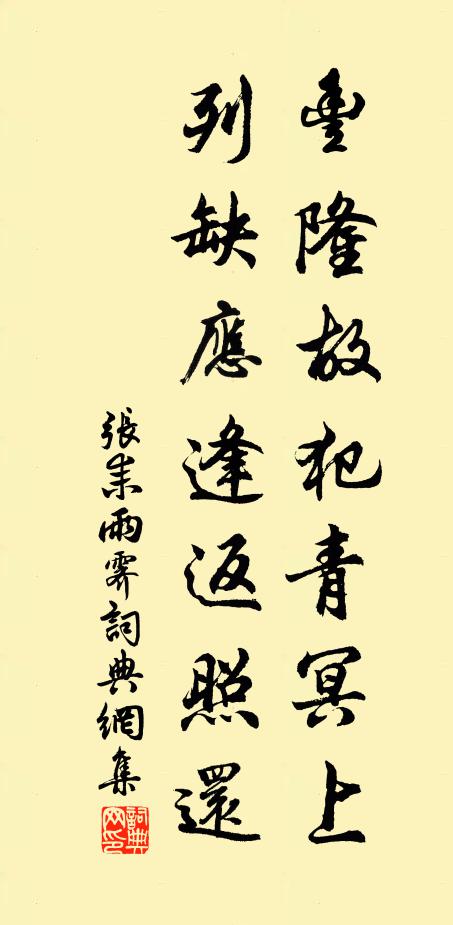 豐隆故犯青冥上
列缺應逢返照還
張耒雨霽詞典網集
詞典网印